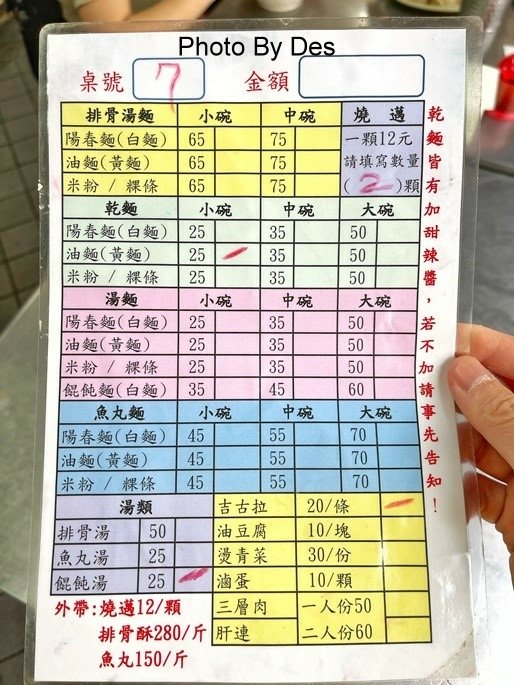 Photo By Des
桌號 7 金額
排骨湯麵 小碗 中碗 燒邁
陽春麵(白麵) 65 75 一顆12元
油麵(黃麵) 65 75 請填寫數量
米粉 / 粿條 65 75 ( 2 )顆
乾麵 小碗 中碗 大碗
陽春麵(白麵) 25 35 50
油麵(黃麵) 25 35 50
米粉 / 粿條 25 35 50
湯麵 小碗 中碗 大碗
陽春麵(白麵) 25 35 50
油麵(黃麵) 25 35 50
米粉 / 粿條 25 35 50
餛飩麵(白麵) 35 45 60
魚丸麵 小碗 中碗 大碗
陽春麵(白麵) 45 55 70
油麵(黃麵) 45 55 70
米粉 / 粿條 45 55 70
湯類 吉古拉 20/條
排骨湯 50 油豆腐 10/塊
魚丸湯 25 燙青菜 30/份
餛飩湯 25 滷蛋 10/顆
三層肉 一人份50
肝連 二人份60
外帶:燒邁12/顆
排骨酥280/斤
魚丸150/斤
乾麵皆有加甜辣醬，若不加請事先告知！